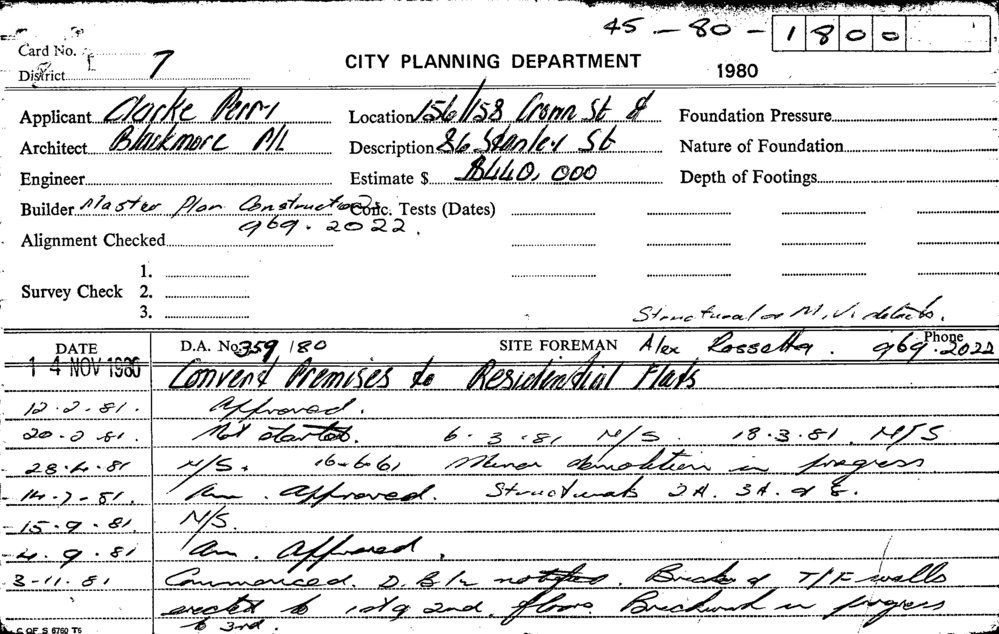 45 - 80 - 1800
Card No.
District 7
CITY PLANNING DEPARTMENT
1980
Applicant Clarke Perry Location 156/158 Crown St & Foundation Pressure
Architect Blackmore P/L Description 86 Stanley St Nature of Foundation
Engineer Estimate $ $440,000 Depth of Footings
Builder Master Plan Constructions Conc. Tests (Dates)
969.2022.
Alignment Checked
1.
Survey Check 2.
3.
Structural or M.V. details.
DATE D.A. No. 359/80 SITE FOREMAN Alex Rossetta. Phone 969.2022
14 NOV 1980 Convert Premises to Residential Flats
12.2.81. Approved.
20.2.81. Not started. 6.3.81 N/S. 18.3.81. N/S
28.4.81 N/S. 16.6.61 Minor demolition in progress
14-7-81. Am. Approved. Structurals 2A. 3A. & E.
15.9.81 N/S.
4.9.81 Am. Approved.
3-11.81 Commenced. D.B.I. notified. Bricks & T/F walls
erected to 1st & 2nd. floors. Brickwork in progress
to 3rd.
C OF S 6760 T6